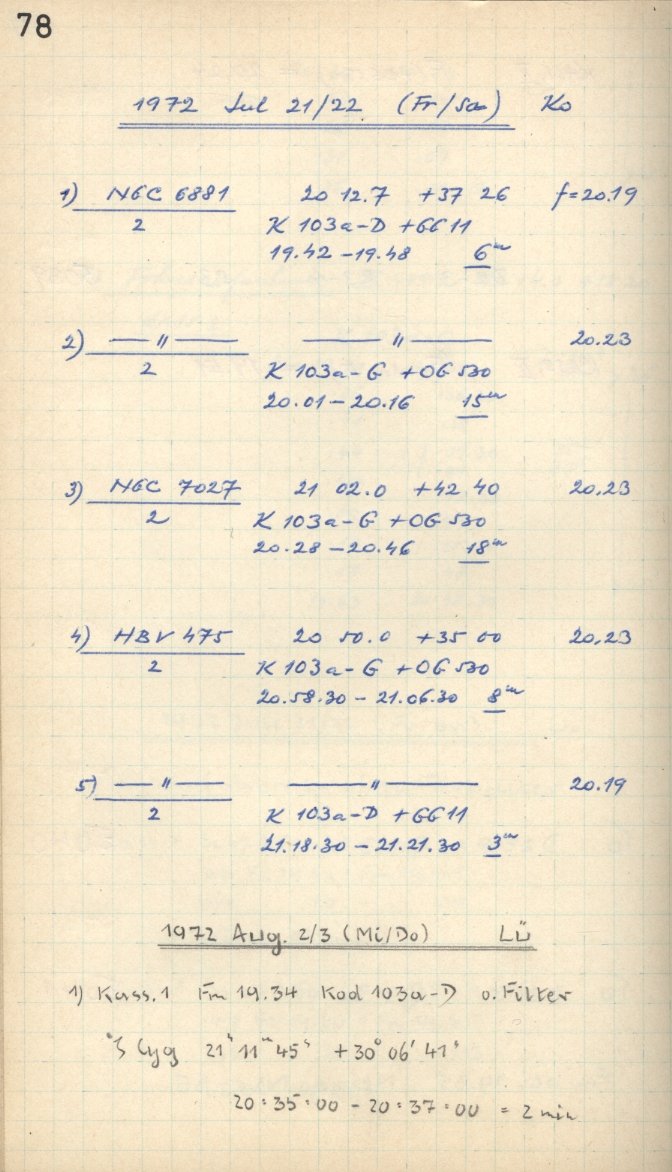 78
1972 Jul 21/22 (Fr/Sa) Ko
1) NGC 6881 20 12.7 +37 26 f=20.19
2 K 103a-D +GG 11
19.42 – 19.48 6m
2) — 〃 — — 〃 — 20.23
2 K 103a-G +OG 530
20.01 – 20.16 15m
3) NGC 7027 21 02.0 +42 40 20.23
2 K 103a-G +OG 530
20.28 – 20.46 18m
4) HBV 475 20 50.0 +35 00 20.23
2 K 103a-G +OG 530
20.58.30 – 21.06.30 8m
5) — 〃 — — 〃 — 20.19
2 K 103a-D +GG 11
21.18.30 – 21.21.30 3m
1972 Aug. 2/3 (Mi/Do) LÜ
1) Kass.1 Fm 19.34 Kod 103a-D o. Filter
ζ Cyg 21h 11m 45s +30° 06' 41"
20:35:00 – 20:37:00 = 2 min